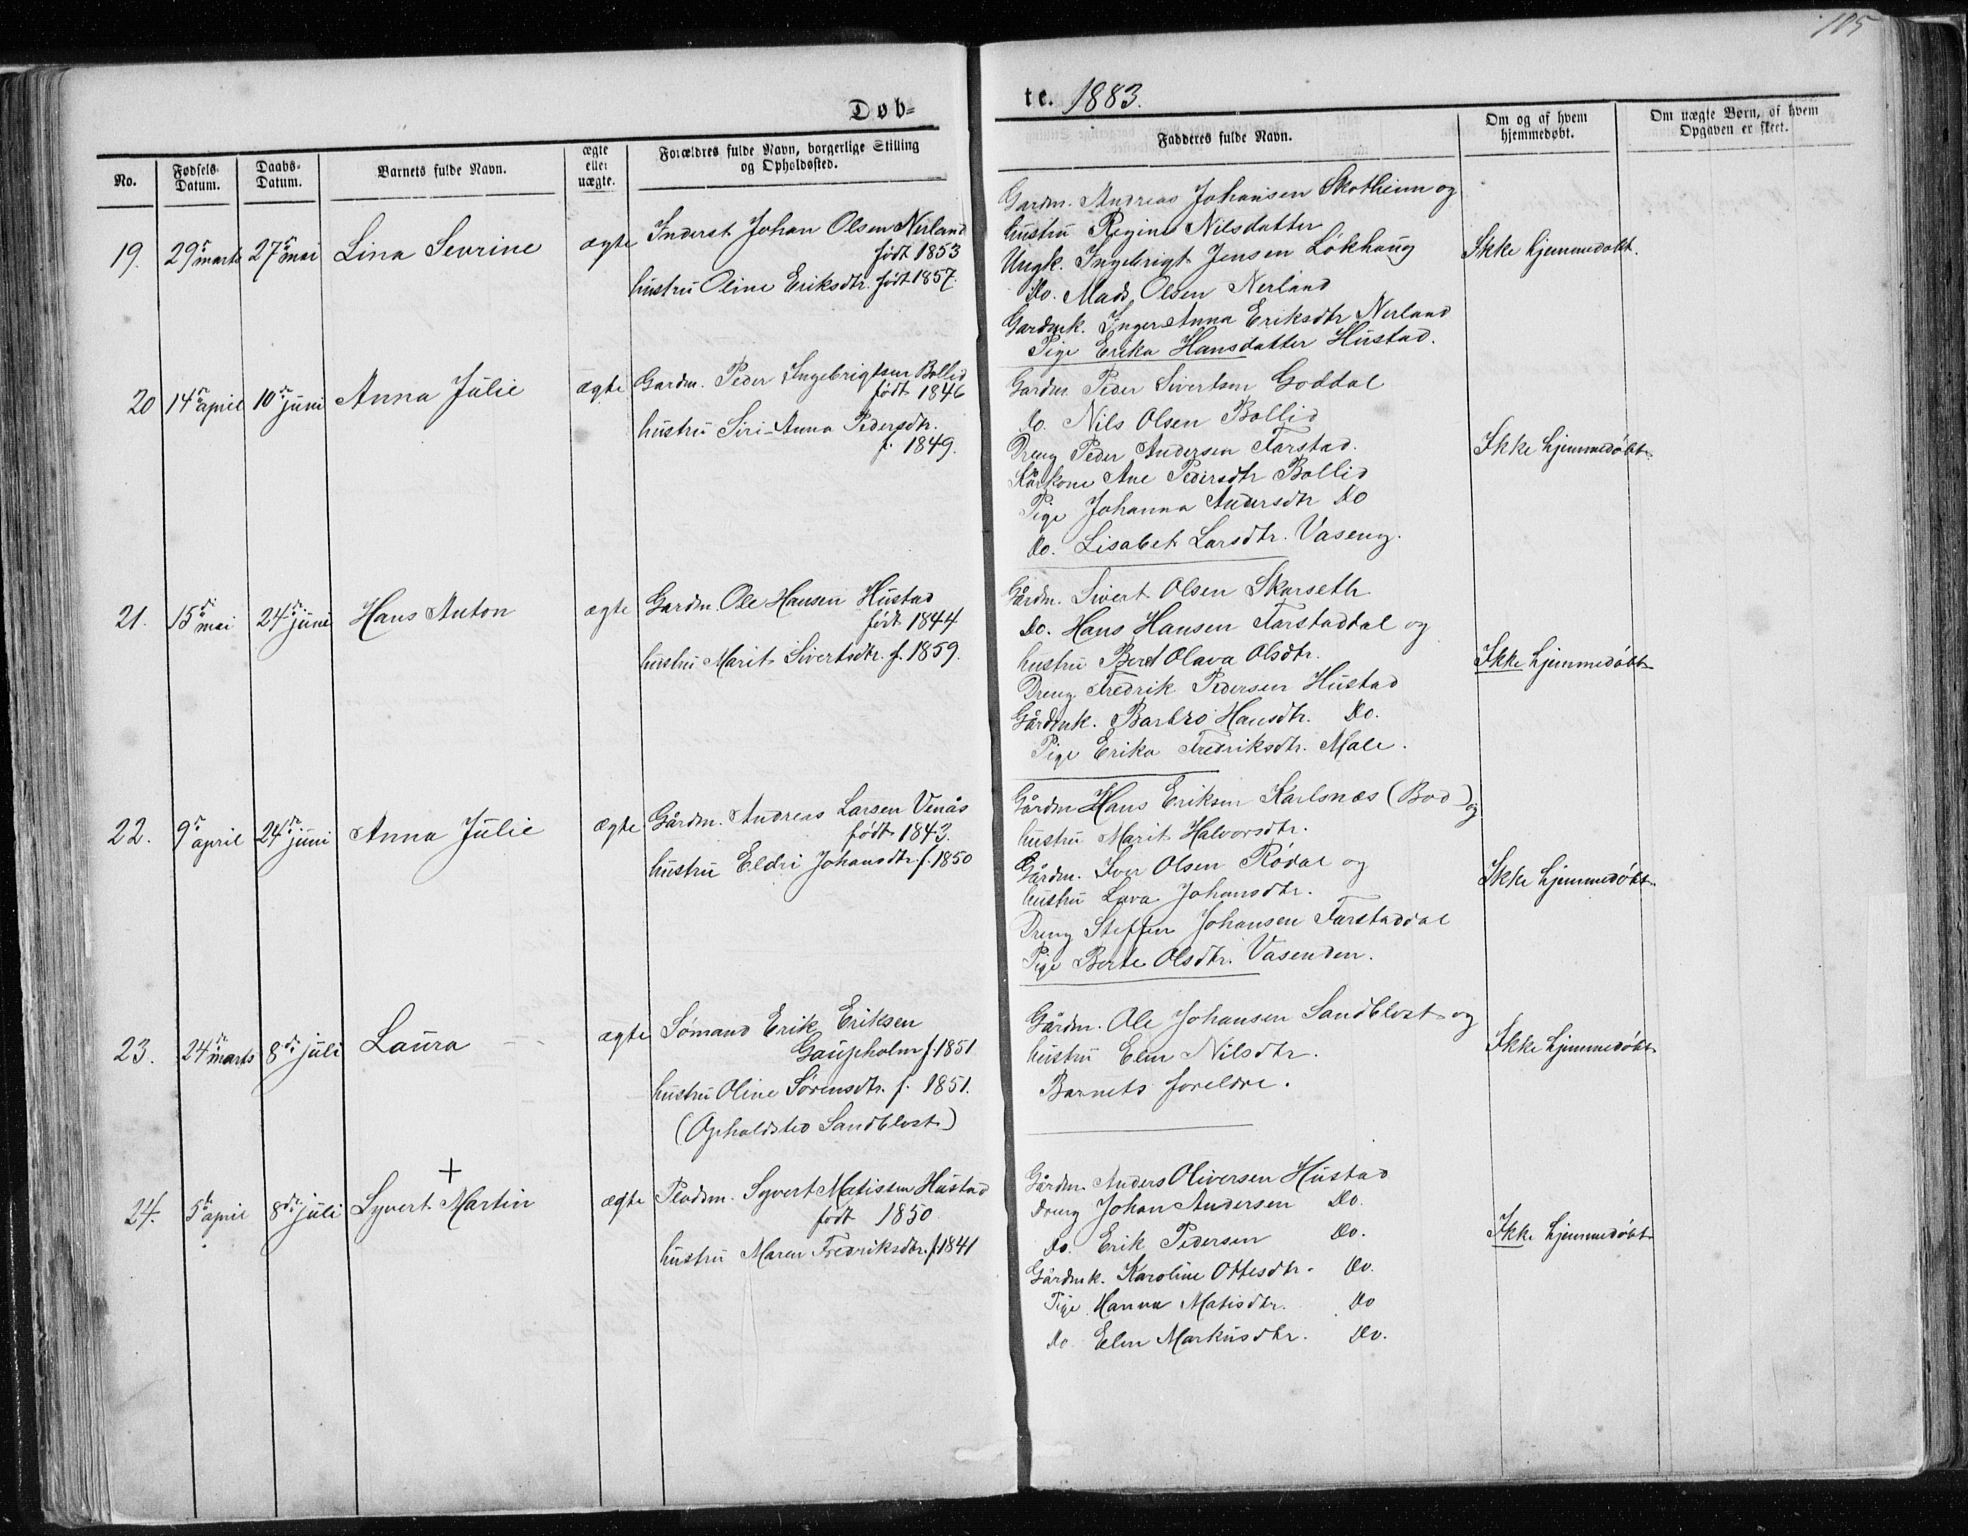 105
Døb-
te. 1883.
No.
Fødsels-
Datum.
Daabs-
Datum.
Barnets fulde Navn.
ægte
eller
uægte.
Forældres fulde Navn, borgerlige Stilling
og Opholdssted.
Fadderes fulde Navn.
Om og af hvem
hjemmedøbt.
Om uægte Børn, af hvem
Opgaven er skeet.
19.
29 marts
27 mai
Lina Sevrine
ægte
Inderst Johan Olsen Nerland
født 1853
hustru Oline Eriksdtr. født 1857.
Gardm. Andreas Johansen Skotheim og
hustru Regine Nilsdatter
Ungk. Ingebrigt Jensen Lökhaug
Do. Mads Olsen Nerland
Gardmk. Inger Anna Eriksdtr Nerland
Pige Erika Hansdatter Hustad.
Ikke hjemmedøbt.
20
14 april
10de juni
Anna Julie
ægte
Gardm. Peder Ingebrigtsen Bollid
født 1846
hustru Siri-Anna Pedersdtr.
f. 1849.
Gardm. Peder Sivertsen Goddal
Do. Nils Olsen Bollid
Dreng Peder Andersen Farstad.
Kårkone Ane Pedersdtr Bollid
Pige Johanna Andersdtr Do
Do. Lisabet Larsdtr. Vaseng.
Ikke hjemmedøbt.
21.
15de mai
24de juni
Hans Anton
ægte
Gardm. Ole Hansen Hustad
født 1844
hustru Marit Sivertsdtr. f. 1859.
Gårdm. Sivert Olsen Skarseth
Do. Hans Hansen Farstaddal og
hustru Beret Olava Olsdtr.
Dreng Fredrik Pedersen Hustad
Gårdmk. Barbro Hansdtr. Do.
Pige Erika Fredriksdtr. Male.
Ikke hjemmedøbt
22.
9 april
24de juni
Anna Julie
ægte
Gårdm. Andreas Larsen Venås
født 1843.
hustru Eldri Johansdtr f. 1850
Gårdm Hans Eriksen Karlsnæs (Bod) og
hustru Marit Halvorsdtr.
Gårdm. Iver Olsen Rödal og
hustru Lava Johansdtr.
Dreng Steffen Johansen Farstaddal
Pige Berte Olsdtr. Vasenden.
Ikke hjemmedøbt.
23.
24de marts
8de juli
Laura
ægte
Sömand Erik Eriksen
Gaupholm f. 1851
hustru Oline Sørensdtr. f. 1851.
(Opholdsted Sandblost)
Gårdm. Ole Johansen Sandblost og
hustru Elen Nilsdtr.
Barnets foreldre.
Ikke hjemmedøbt
24.
5 april
8de juli
+
Syvert Martin
ægte
Pladsm. Syvert Matissen Hustad
født 1850
hustru Maren Fredriksdtr. f. 1841
Gårdm. Anders Oliversen Hustad
Dreng Johan Andersen Do.
Do. Erik Pedersen Do.
Gårdmk. Karoline Ottesdtr. Do.
Pige Hanna Matisdtr. Do
Do. Elen Markusdtr. Do.
Ikke hjemmedøbt